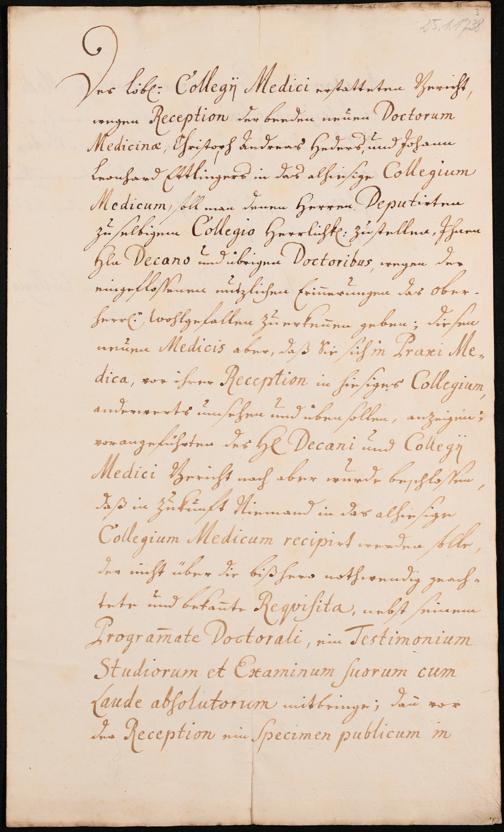 25.1.1738
Des Löbl: Collegÿ Medici erstatteten Bericht,
wegen Reception der beeden neuen Doctorum
Medicinæ, Christoph Andreas Heders, und Johann
Leonhard Ettlingers in das alhiesige Collegium
Medicum, soll man denen Herren Deputirten
zu selbigem Collegio Herrlichk: zustellen, Ihnen
Hln Decano und übrigen Doctoribus, wegen der
eingeflossenen nützlichen Erinnerungen das ober-
herrl: Wohlgefallen zu erkennen geben; diesen
neuen Medicis aber, daß Sie sich in Praxi Me-
dica, vor ihrer Reception in hiesiges Collegium,
anderwerts umsehen und üben sollen, anzeigen;
vorangeführten des Hl Decani und Collegÿ
Medici Bericht nach aber wurde beschlossen,
daß in Zukunft Niemand in das alhiesige
Collegium Medicum recipirt werden solle,
der nicht über die bißhero nothwendig geach-
tete und bekañte Requisita, nebst seinem
Program̃ate Doctorali, ein Testimonium
Studiorum et Examinum suorum cum
Laude absolutorum mitbringe; dañ vor
der Reception ein Specimen publicum in